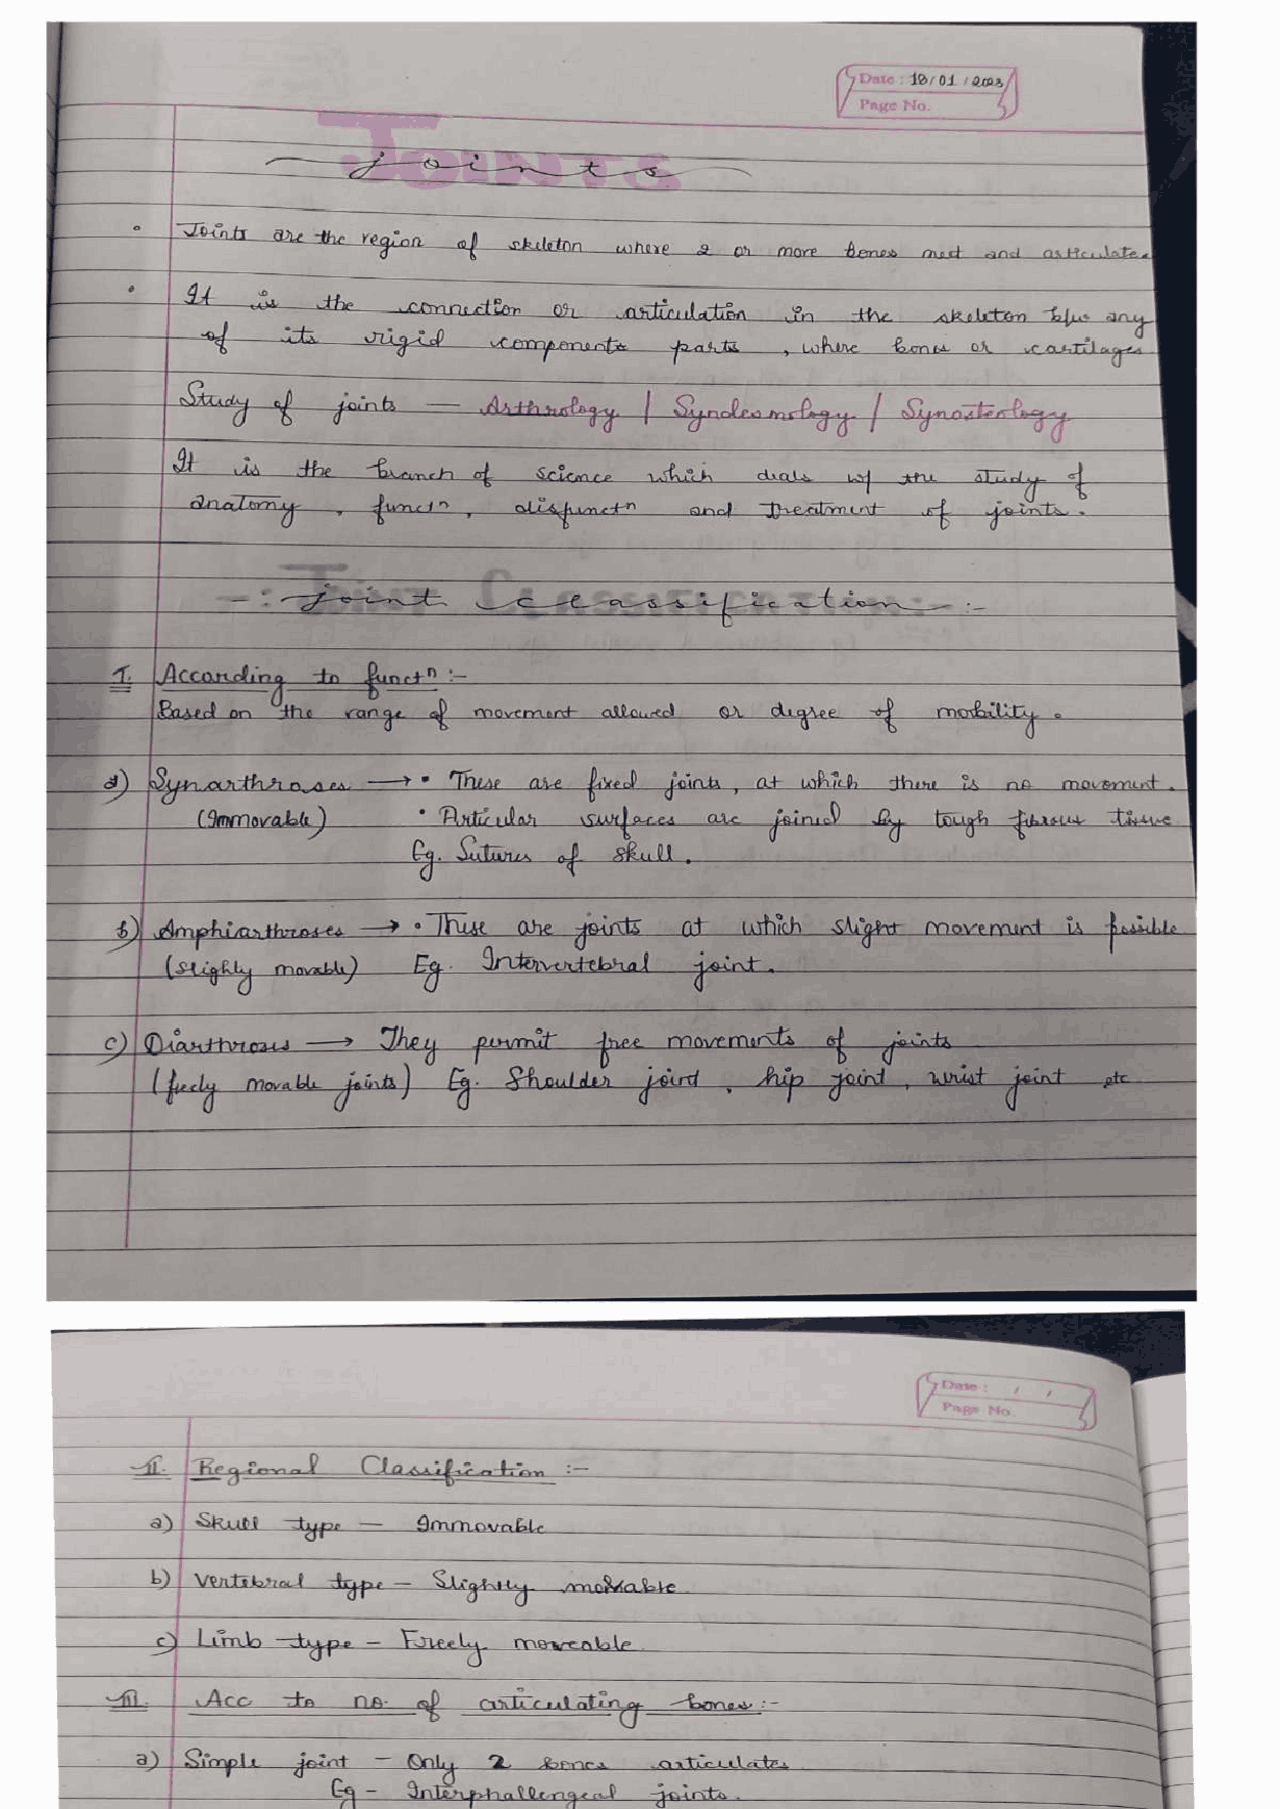 Date : 18/01/2023
Page No.
Joints
• Joints are the region of skeleton where 2 or more bones meet and articulate.
• It is the connection or articulation in the skeleton b/w any
of its rigid components parts, where bones or cartilages
Study of joints — Arthrology / Syndesmology / Synosteology
It is the branch of science which deals w/ the study of
anatomy, functn, disfunctn and treatment of joints.
-: Joint Classification :-
I. According to functn :-
Based on the range of movement allowed or degree of mobility.
a) Synarthroses → • These are fixed joints, at which there is no movement.
(Immovable) • Articular surfaces are joined by tough fibrous tissue
Eg. Sutures of skull.
b) Amphiarthroses → • These are joints at which slight movement is possible
(slighly movable) Eg. Intervertebral joint.
c) Diarthrosis → They permit free movements of joints
(freely movable joints) Eg. Shoulder joint, hip joint, wrist joint etc
Date : / /
Page No.
II. Regional Classification :-
a) Skull type — Immovable
b) Vertebral type — Slightly movable
c) Limb type – Freely moveable.
III. Acc to no. of articulating bones :-
a) Simple joint – Only 2 bones articulates
Eg – Interphallengeal joints.